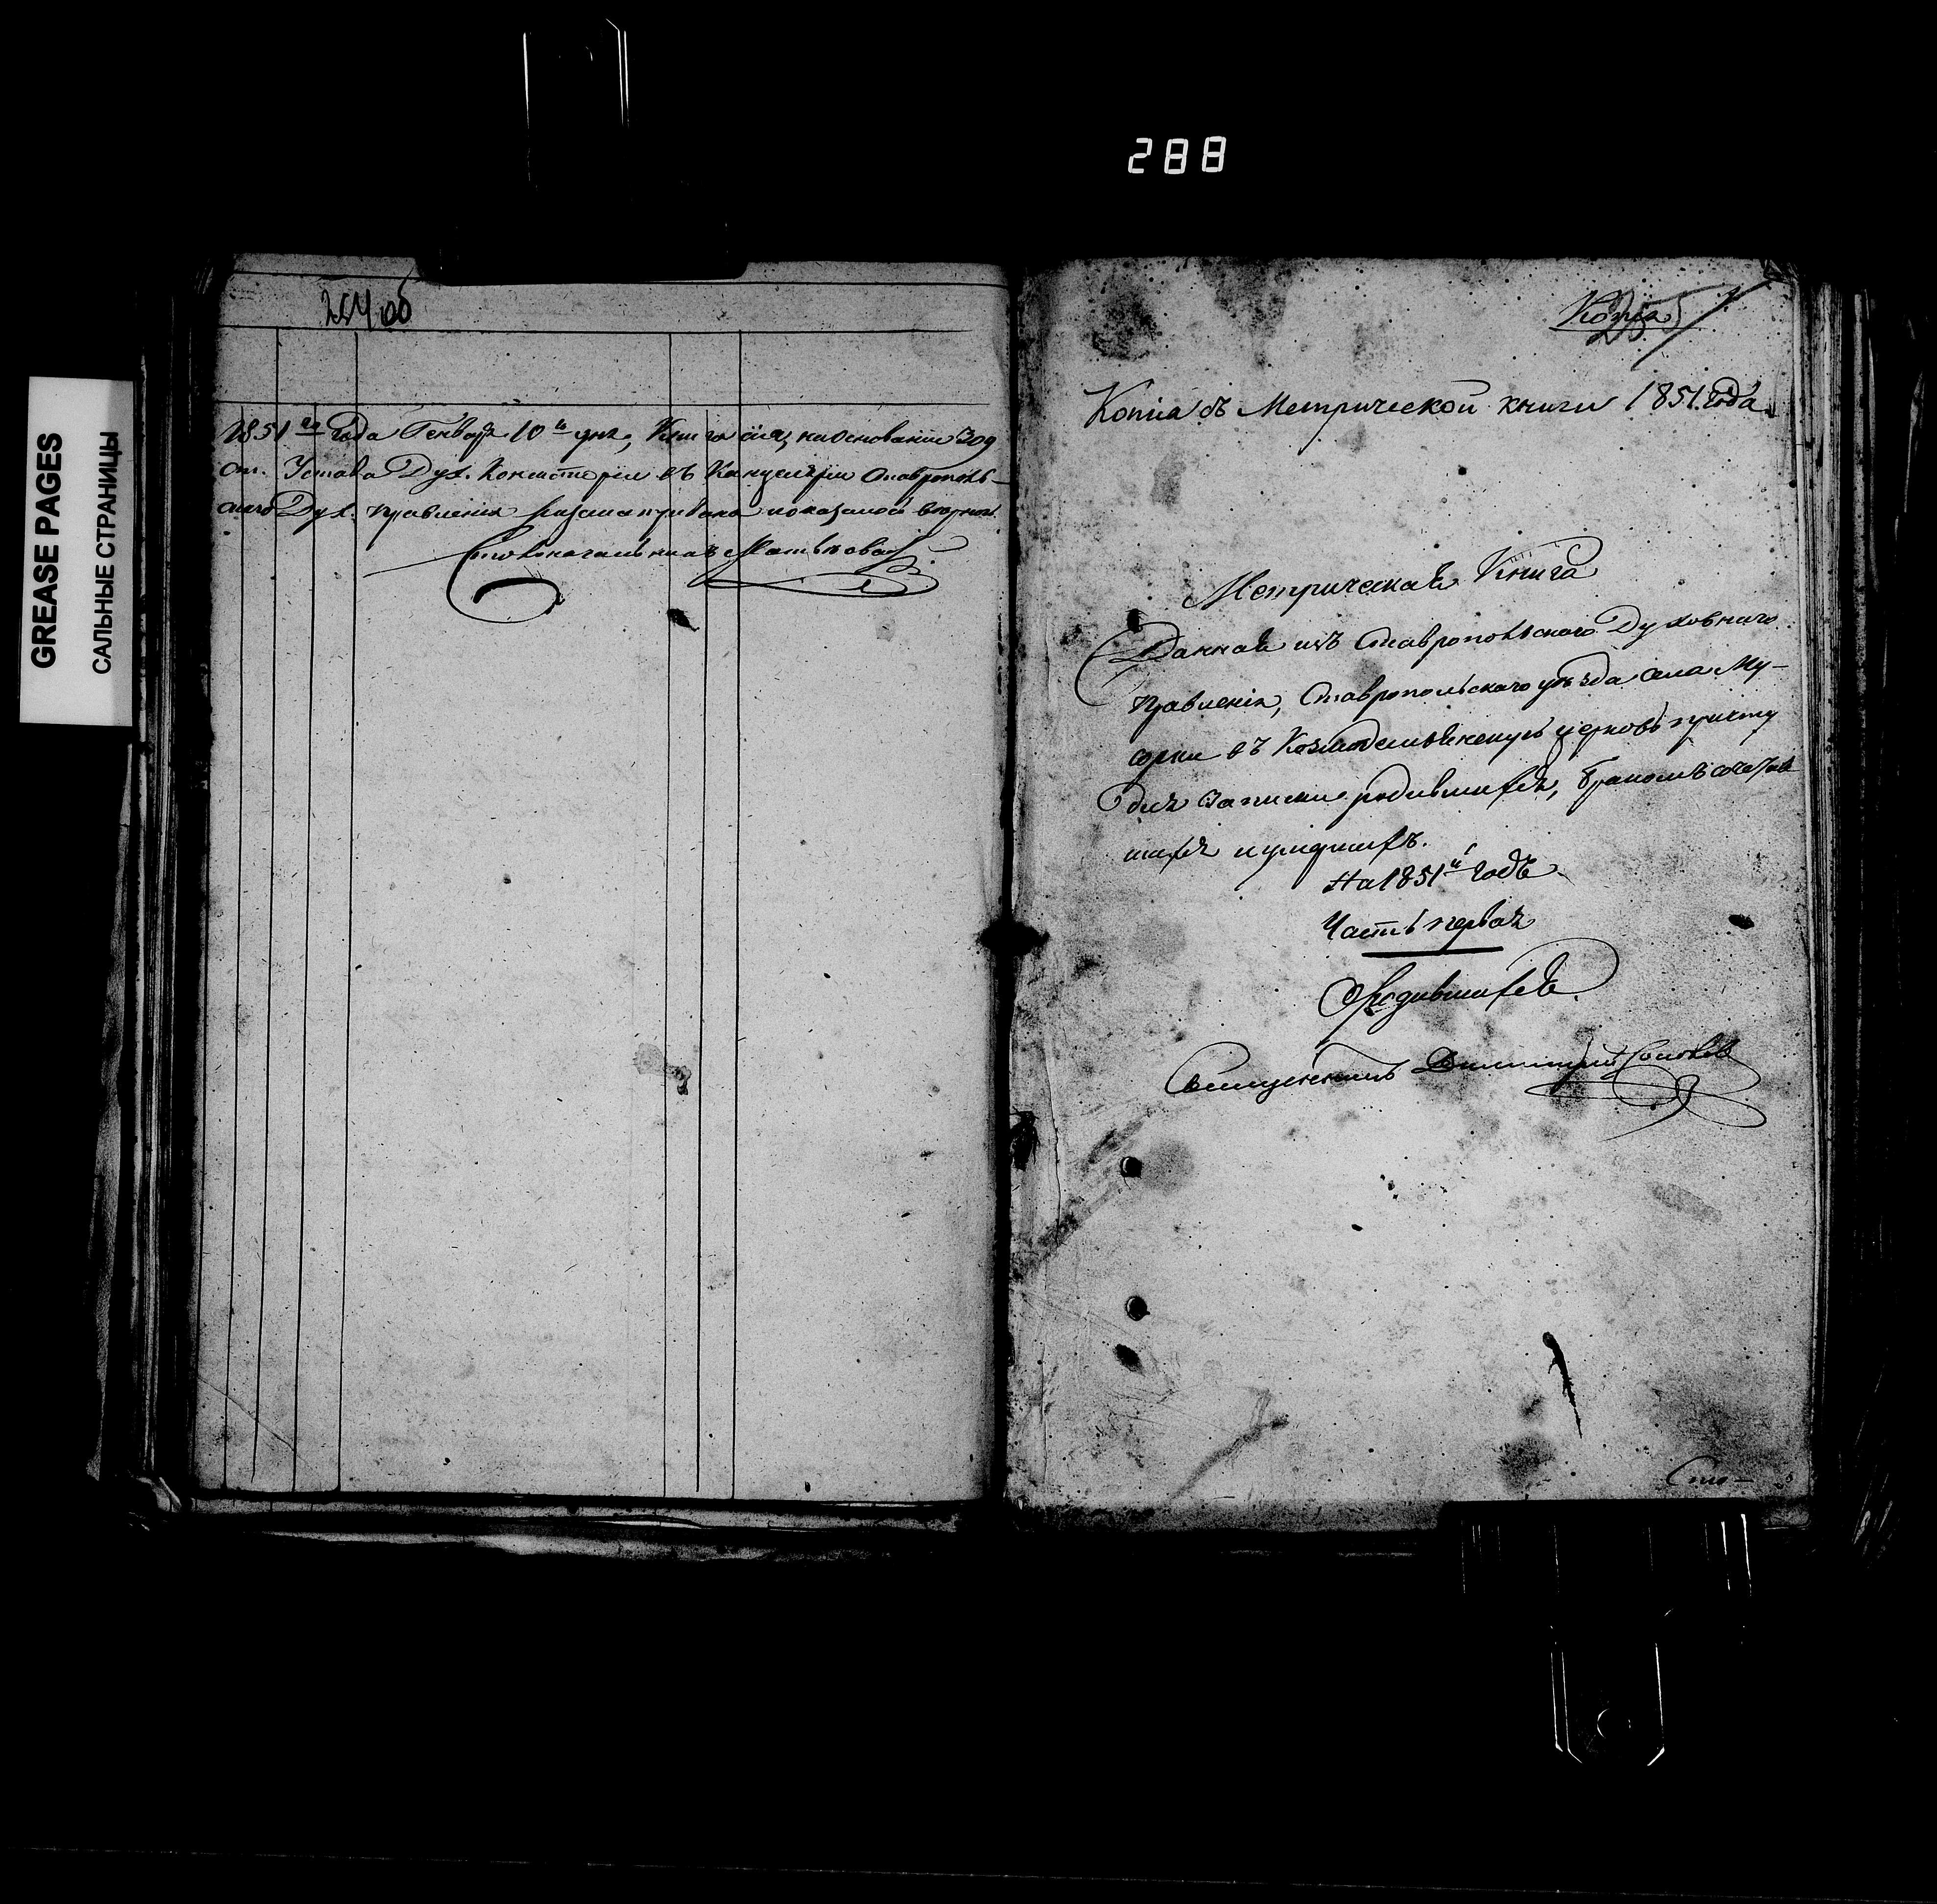 288
GREASE PAGES
САЛЬНЫЕ СТРАНИЦЫ
254 об
1851го года Генваря 10го дня, Книга сія, на основаніи 309
ст. Устава Дух. Консисторіи въ Канцеляріи Ставрополь-
скаго Дух. Правленія и оказалась вѣрною.
Столоначальникъ
Копія
255
Копія съ Метрической книги 1851 года.
Метрическая Книга
Данная изъ Ставропольскаго Духовнаго
Правленія, Ставропольскаго уѣзда села Му-
сорки въ Козмодемьянскую церковь причту
для записки родившихся, бракомъ сочетав
шихся и умершихъ.
На 1851й годъ.
Часть первая
О родившихся.
Священникъ Димитрій
Сто-